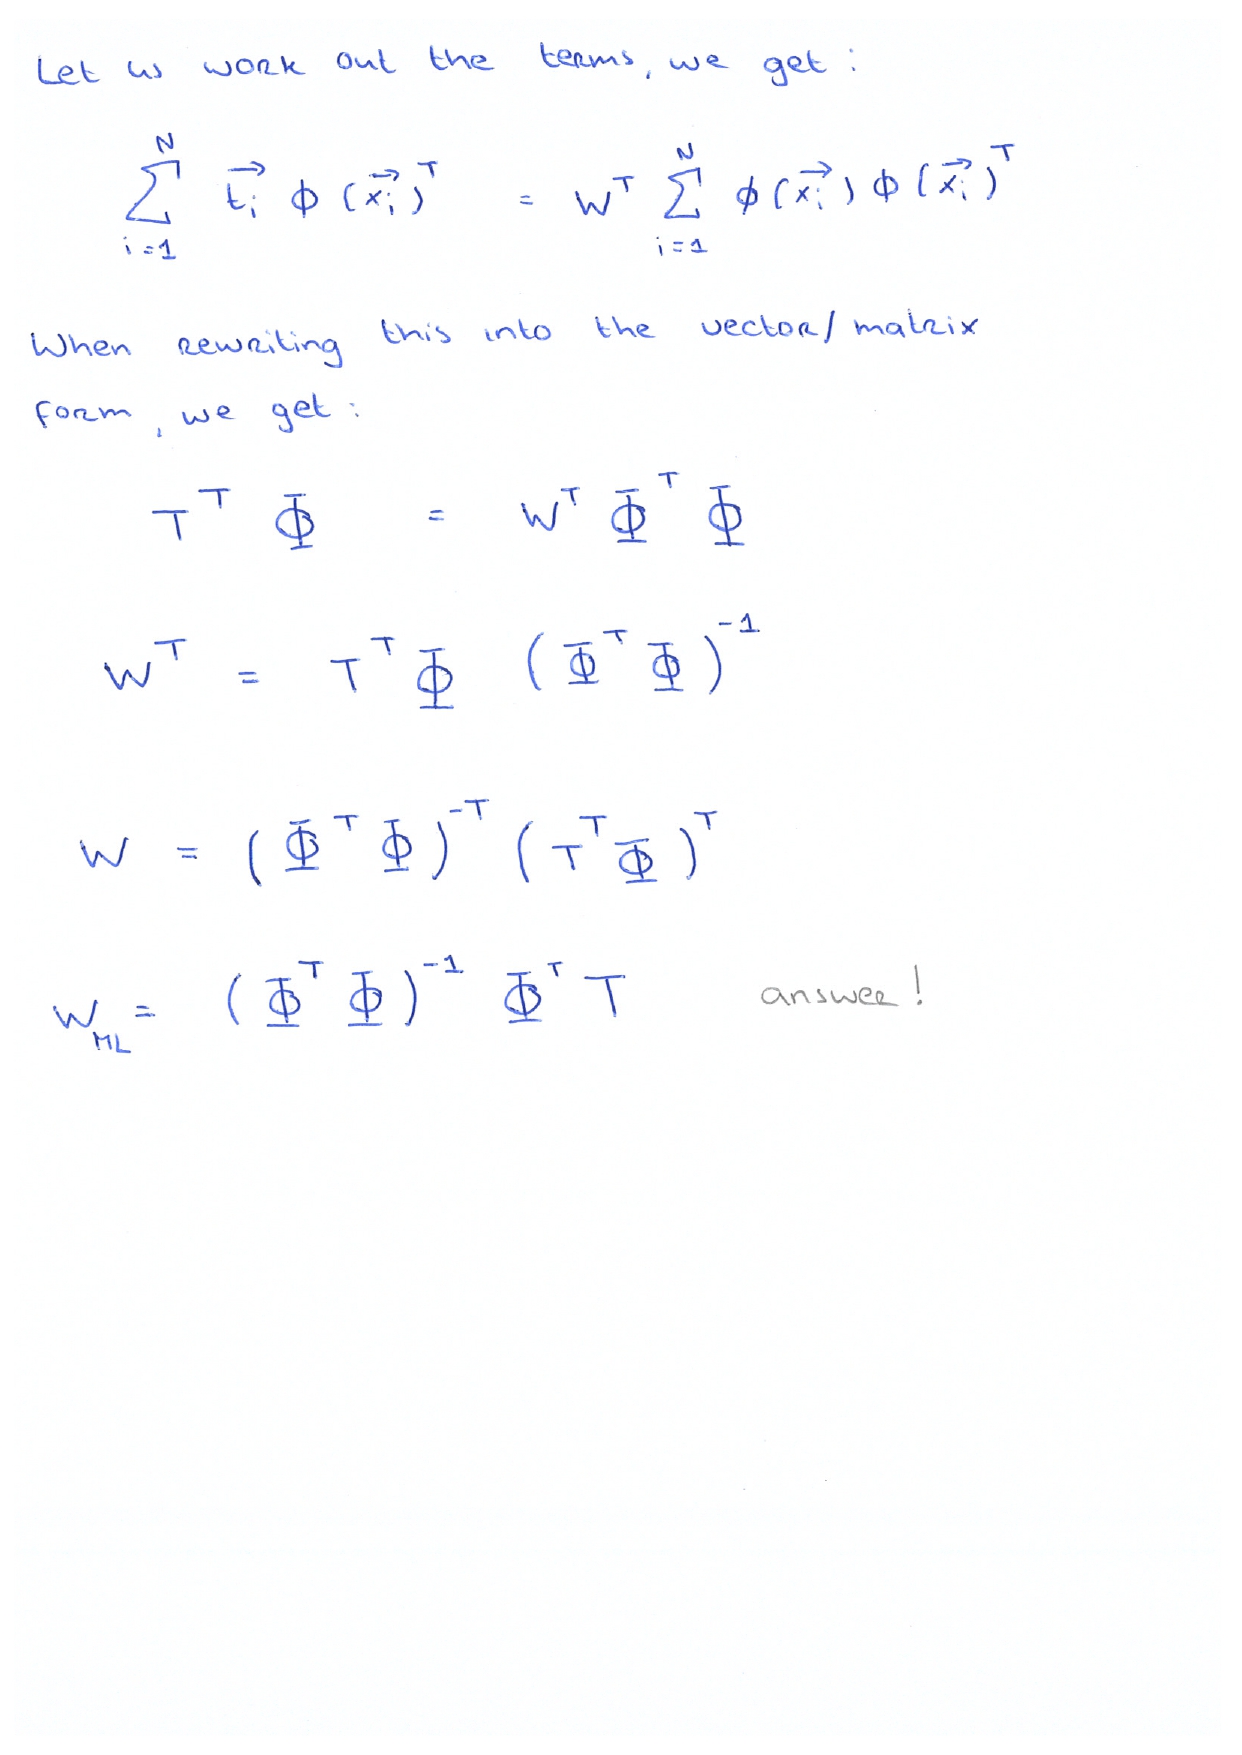 Let us work out the terms, we get :
N N
∑ t⃗ᵢ ϕ(x⃗ᵢ)ᵀ = Wᵀ ∑ ϕ(x⃗ᵢ) ϕ(x⃗ᵢ)ᵀ
i=1 i=1
When rewriting this into the vector/matrix
form, we get :
Tᵀ Φ = Wᵀ Φᵀ Φ
Wᵀ = Tᵀ Φ (Φᵀ Φ)⁻¹
W = (Φᵀ Φ)⁻ᵀ (Tᵀ Φ)ᵀ
W_ML = (Φᵀ Φ)⁻¹ Φᵀ T answer!